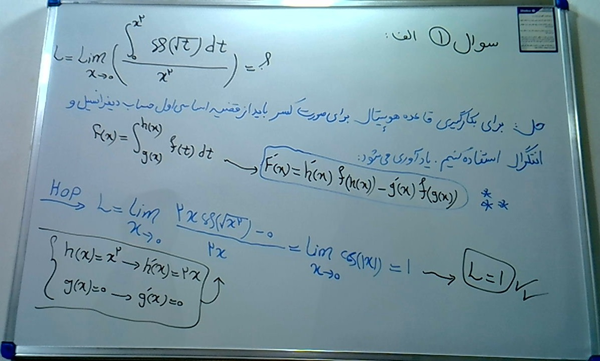 سوال ① الف:
L = Lim x→0 ( ∫₀^x² cos(√t) dt / x² ) = ؟
حل: برای بکارگیری قاعده هوپیتال برای صورت کسر باید از قضیه اساسی اول حساب دیفرانسیل و
انتگرال استفاده کنیم. یادآوری می‌شود:
F(x) = ∫_g(x)^h(x) f(t) dt → F′(x) = h′(x) f(h(x)) − g′(x) f(g(x)) ***
HOP → L = Lim x→0 ۲x cos(√x²) − 0 / ۲x = Lim x→0 cos(|x|) = 1 → L = 1 ✓✓
h(x) = x² → h′(x) = ۲x
g(x) = 0 → g′(x) = 0